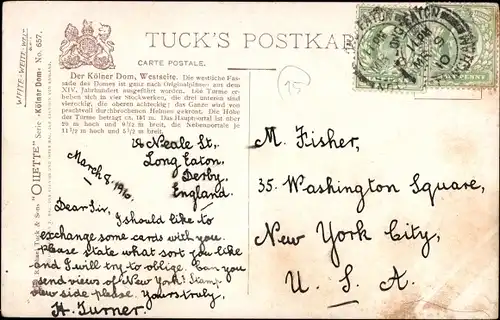 TUCK'S POSTKAR
CARTE POSTALE.
Der Kölner Dom, Westseite. Die westliche Fas-
sade des Domes ist ganz nach Originalplänen aus dem
XIV. Jahrhundert ausgeführt worden. Die Türme er-
heben sich in vier Stockwerken, die drei unteren sind
viereckig, die oberen achteckig; das Ganze wird von
prachtvoll durchbrochenen Helmen gekrönt. Die Höhe
der Türme beträgt ca. m. Das Hauptportal ist über
m hoch und 9½ m breit, die Nebenportale je
11½ m hoch und 5½ m breit.
WHITE-WHITE-WHITE
"OILETTE" Serie "Kölner Dom" No. 657.
Raphael Tuck & Sons
15
LONG EATON
MR
10
PENNY
Neale St,
Long Eaton,
Derby,
England.
March 8. 1910.
Dear Sir,
I should like to
exchange some cards with you.
Please state what sort you like
and I will try to oblige. Can you
send views of New York? Stamp
view side please. Yours truly,
H. Turner.
M. Fisher,
35. Washington Square,
New York City,
U. S. A.